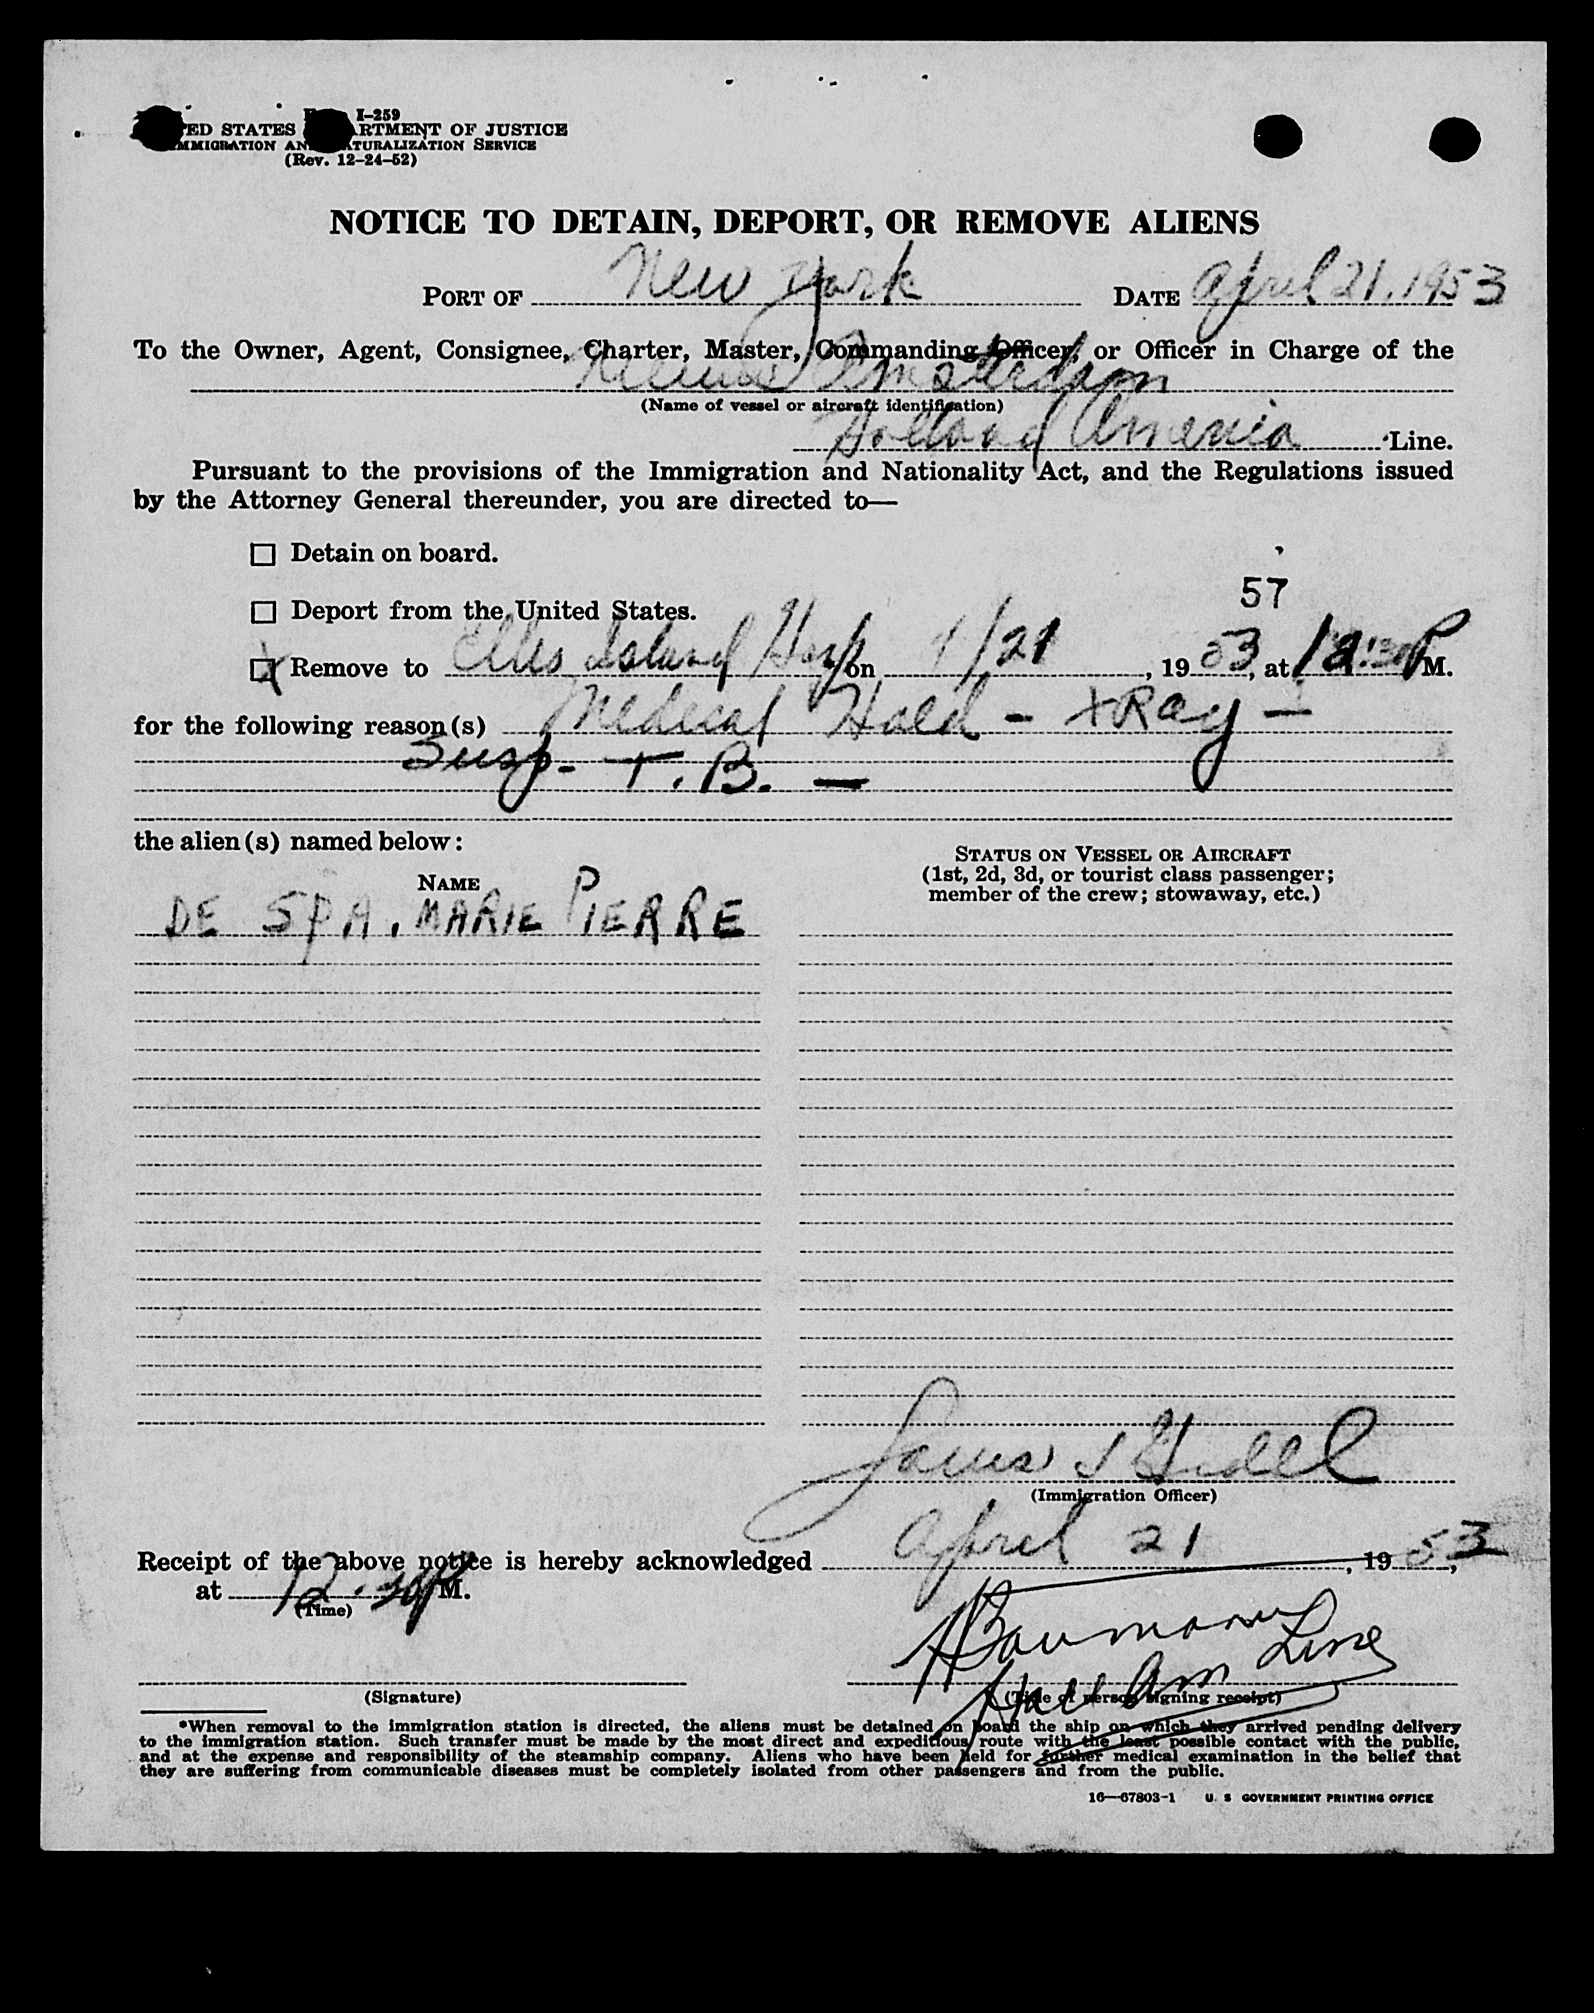 I-259
STATES OF JUSTICE
SERVICE
(Rev. 12-24-52)
NOTICE TO DETAIN, DEPORT, OR REMOVE ALIENS
PORT OF New York DATE April 21, 1953
To the Owner, Agent, Consignee, Charter, Master, Commanding Officer, or Officer in Charge of the
Amsterdam
(Name of vessel or aircraft identification)
Holland America Line.
Pursuant to the provisions of the Immigration and Nationality Act, and the Regulations issued
by the Attorney General thereunder, you are directed to—
☐ Detain on board.
57
☐ Deport from the United States.
☒ Remove to Ellis Island Hosp on 4/21, 1953, at 12:30 P M.
for the following reason(s) Medical Hold - XRay -
Susp- T.B. -
the alien(s) named below:
STATUS ON VESSEL OR AIRCRAFT
(1st, 2d, 3d, or tourist class passenger;
member of the crew; stowaway, etc.)
NAME
DE SPA, MARIE PIERRE
(Immigration Officer)
Receipt of the above notice is hereby acknowledged April 21, 1953,
at 12:30 P M.
(Time)
H Baumann
Holl Am Line
(Signature) (Title of person signing receipt)
*When removal to the immigration station is directed, the aliens must be detained on board the ship on which they arrived pending delivery
to the immigration station. Such transfer must be made by the most direct and expeditious route with the least possible contact with the public,
and at the expense and responsibility of the steamship company. Aliens who have been held for further medical examination in the belief that
they are suffering from communicable diseases must be completely isolated from other passengers and from the public.
16—67803-1 U. S GOVERNMENT PRINTING OFFICE